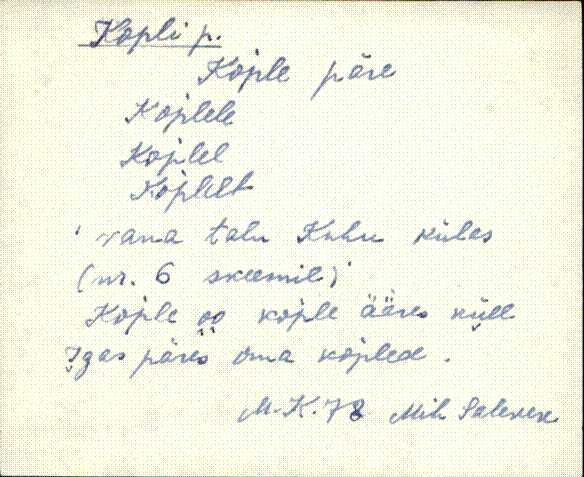 Kopli p.
Kople päre
Koplele
Koplel
Koplelt
' vana talu Kuhu külas
(nr. 6 skeemil)'
Kople oo kople ääres küll
Igas päres oma kopled.
M.K. 78 Mih